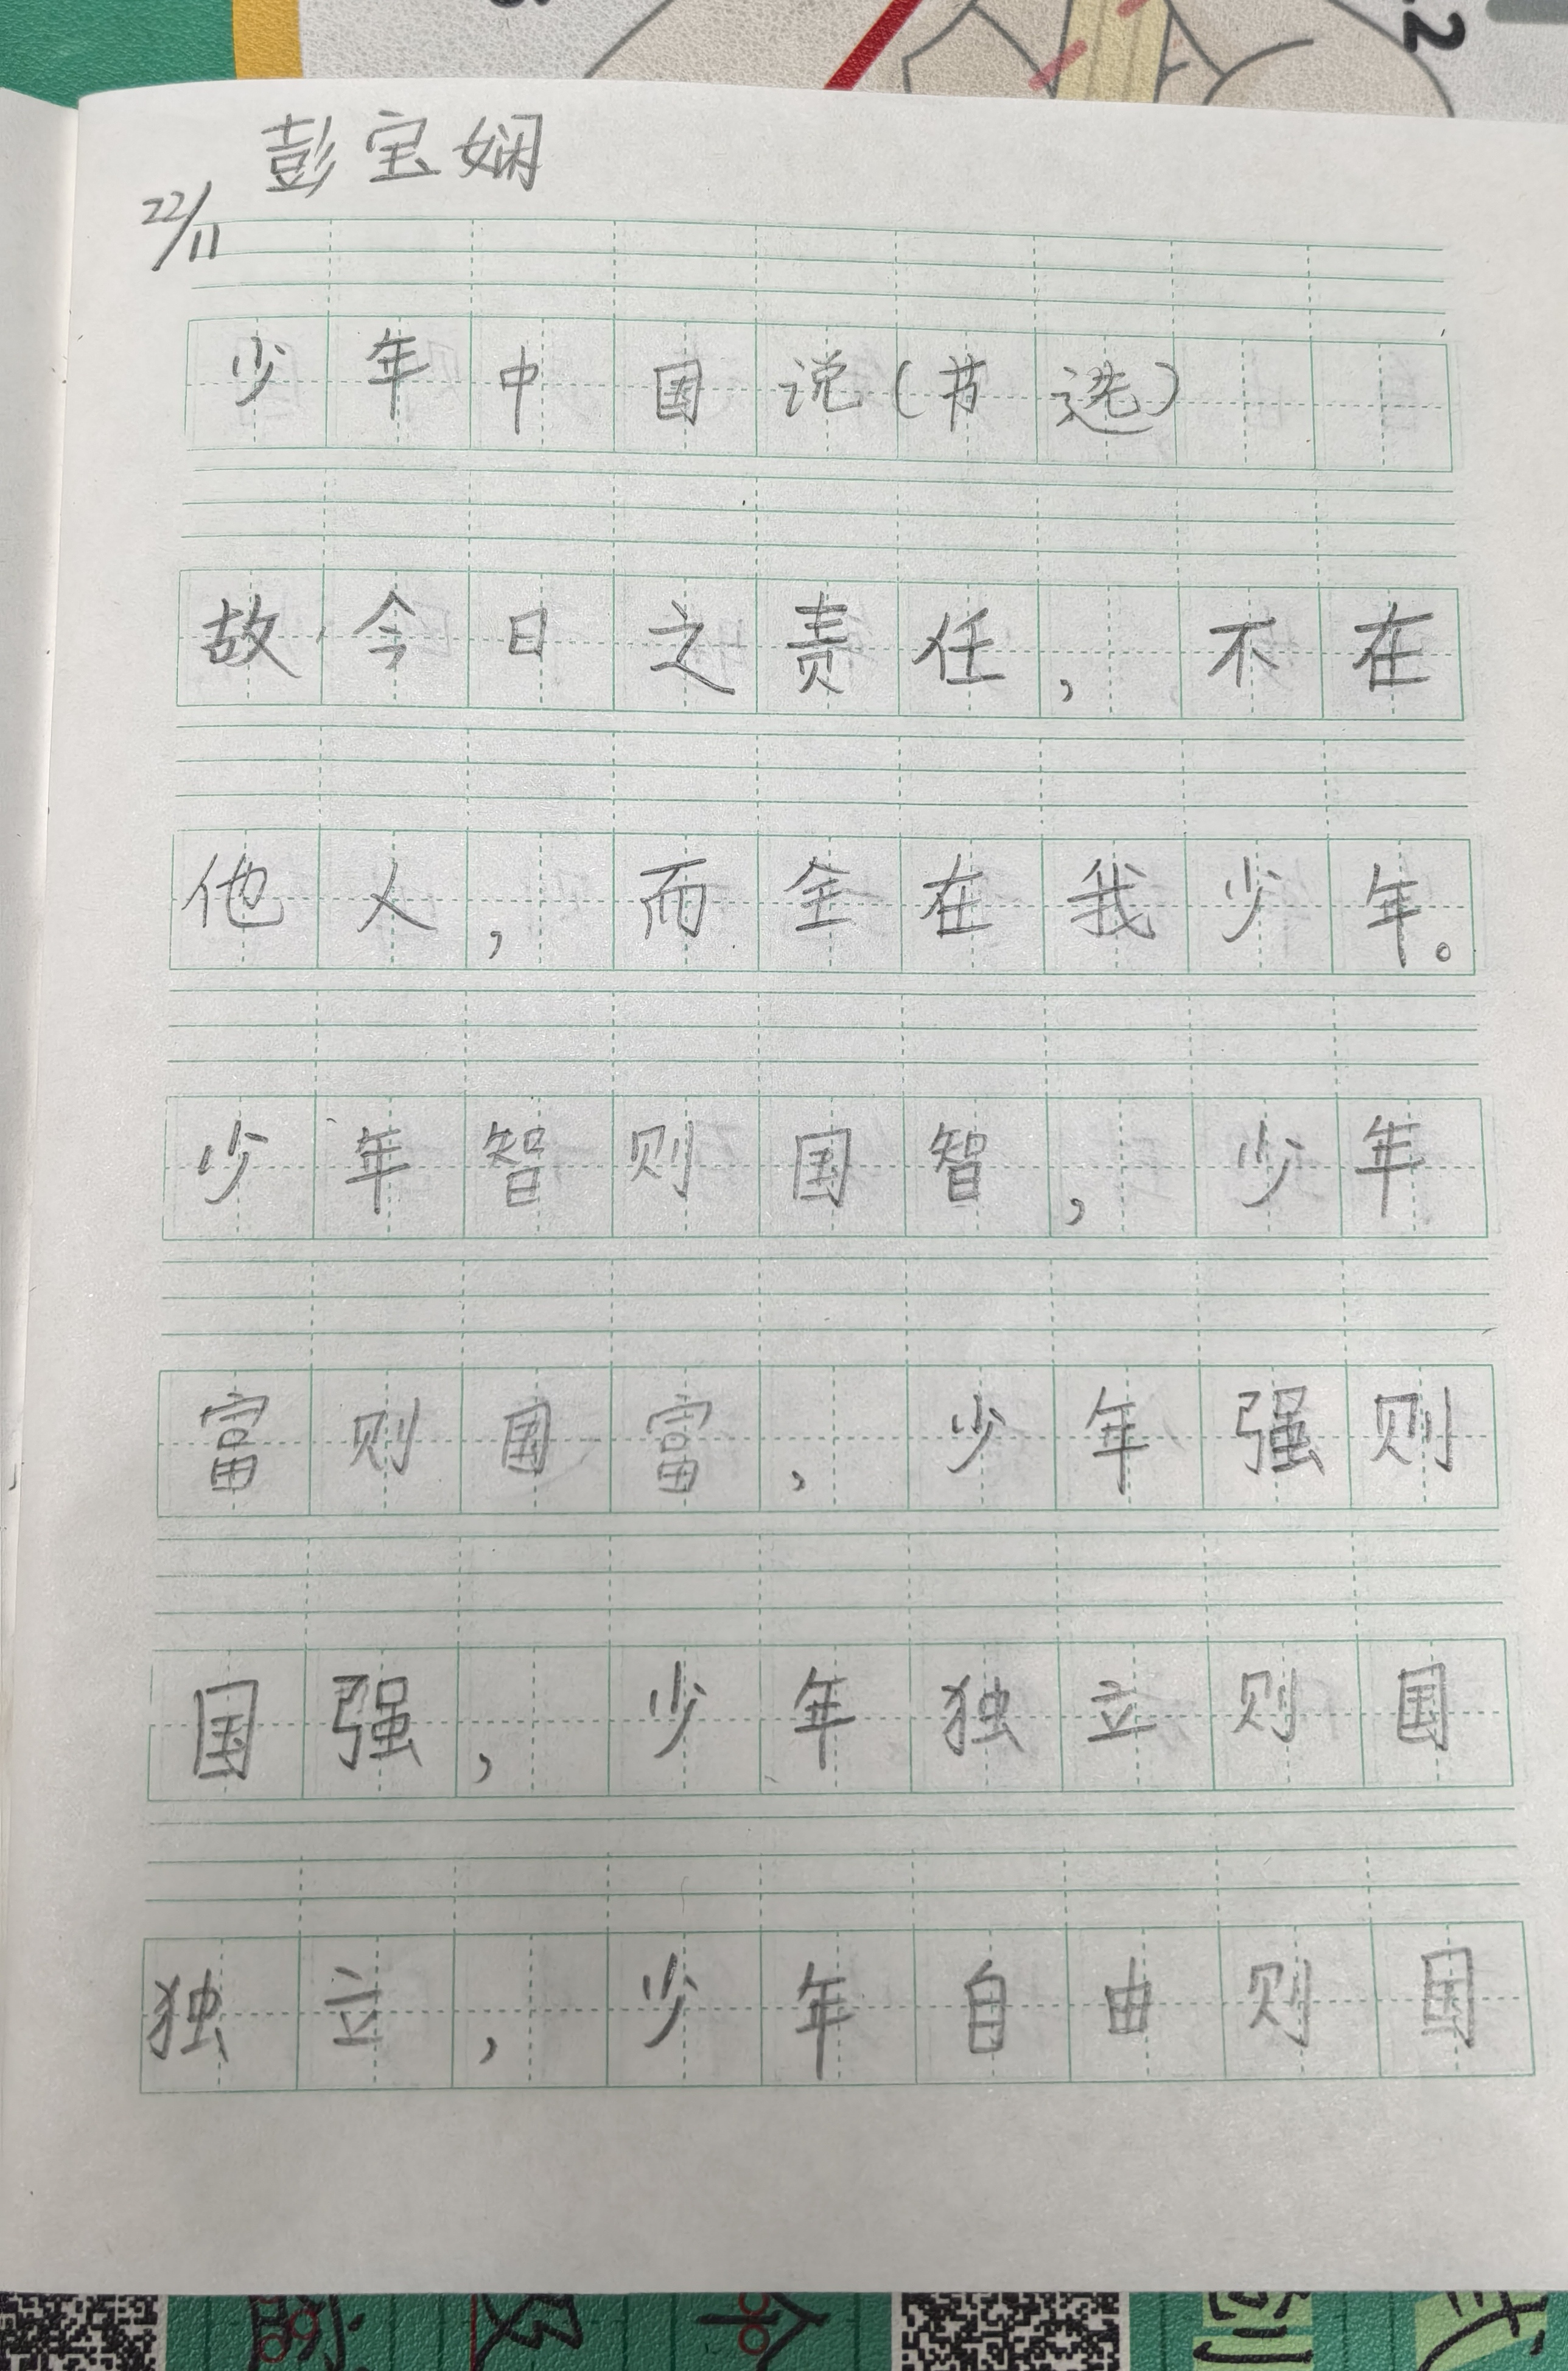 彭宝娴
22/11
少年中国说(节选)
故今日之责任,不在
他人,而全在我少年。
少年智则国智,少年
富则国富,少年强则
国强,少年独立则国
独立,少年自由则国